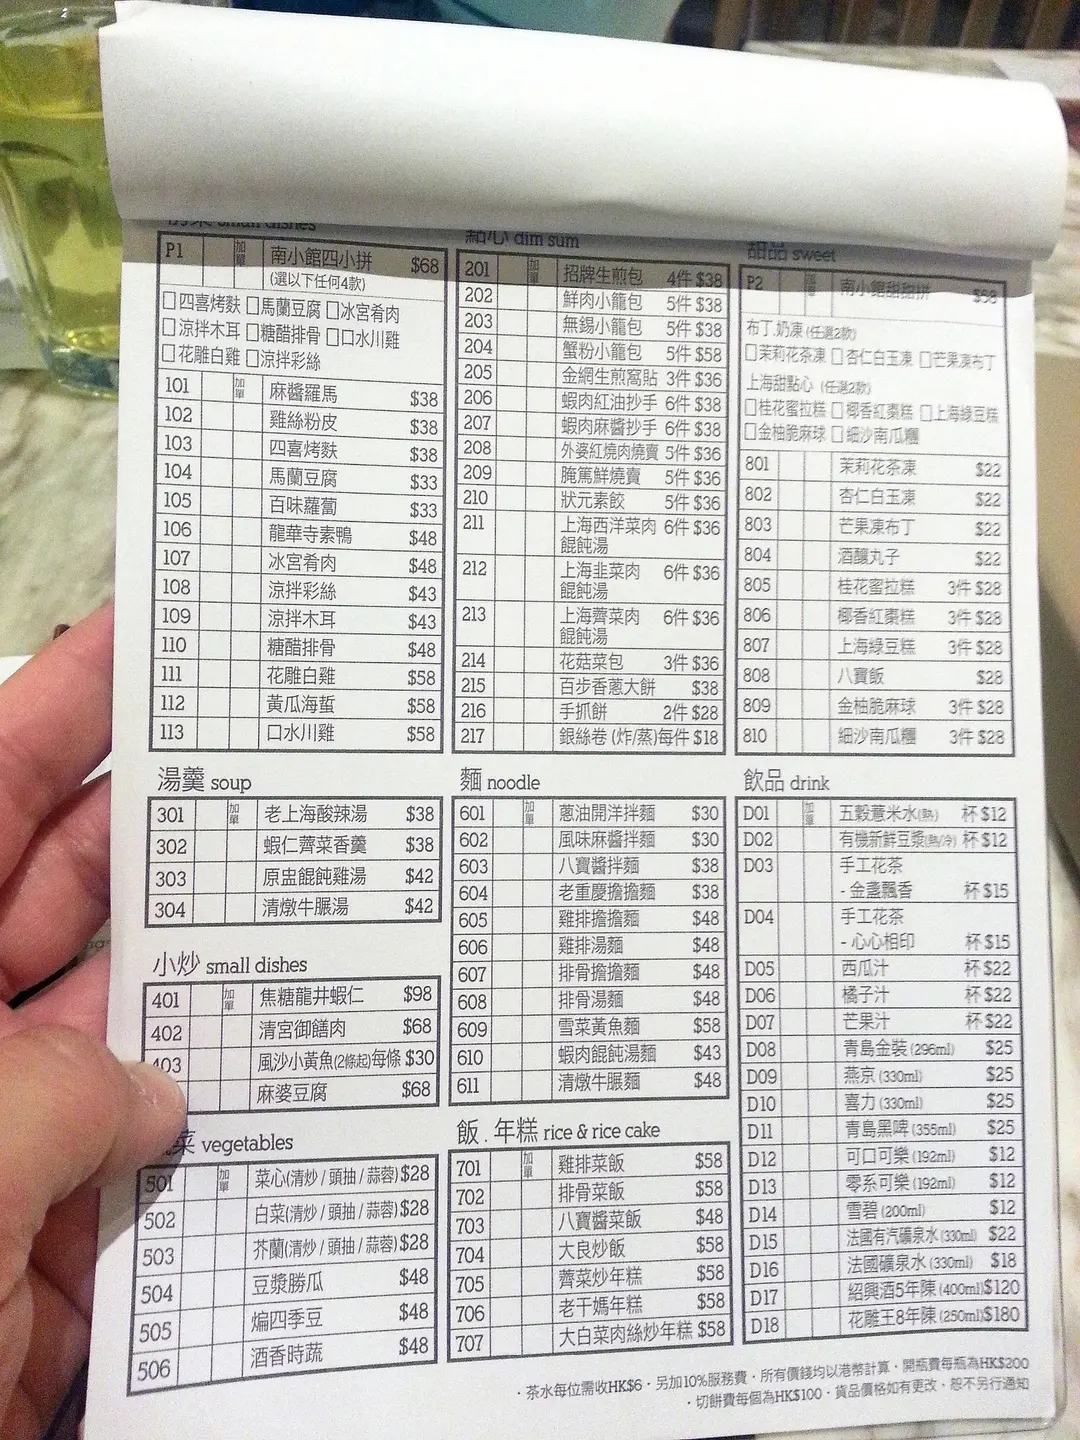 small dishes
P1 加單 南小館四小拼 $68
(選以下任何4款)
□四喜烤麩 □馬蘭豆腐 □冰宮肴肉
□涼拌木耳 □糖醋排骨 □口水川雞
□花雕白雞 □涼拌彩絲
101 加單 麻醬羅馬 $38
102 雞絲粉皮 $38
103 四喜烤麩 $38
104 馬蘭豆腐 $33
105 百味蘿蔔 $33
106 龍華寺素鴨 $48
107 冰宮肴肉 $48
108 涼拌彩絲 $43
109 涼拌木耳 $43
110 糖醋排骨 $48
111 花雕白雞 $58
112 黃瓜海蜇 $58
113 口水川雞 $58
點心 dim sum
201 加單 招牌生煎包 4件 $38
202 鮮肉小籠包 5件 $38
203 無錫小籠包 5件 $38
204 蟹粉小籠包 5件 $58
205 金網生煎窩貼 3件 $36
206 蝦肉紅油抄手 6件 $38
207 蝦肉麻醬抄手 6件 $38
208 外婆紅燒肉燒賣 5件 $36
209 醃篤鮮燒賣 5件 $36
210 狀元素餃 5件 $36
211 上海西洋菜肉 6件 $36
餛飩湯
212 上海韭菜肉 6件 $36
餛飩湯
213 上海薺菜肉 6件 $36
餛飩湯
214 花菇菜包 3件 $36
215 百步香蔥大餅 $38
216 手抓餅 2件 $28
217 銀絲卷 (炸/蒸)每件 $18
甜品 sweet
P2 加單 南小館甜甜拼 $58
布丁.奶凍 (任選2款)
□茉莉花茶凍 □杏仁白玉凍 □芒果凍布丁
上海甜點心 (任選2款)
□桂花蜜拉糕 □椰香紅棗糕 □上海綠豆糕
□金柚脆麻球 □細沙南瓜糰
801 茉莉花茶凍 $22
802 杏仁白玉凍 $22
803 芒果凍布丁 $22
804 酒釀丸子 $22
805 桂花蜜拉糕 3件 $28
806 椰香紅棗糕 3件 $28
807 上海綠豆糕 3件 $28
808 八寶飯 $28
809 金柚脆麻球 3件 $28
810 細沙南瓜糰 3件 $28
湯羹 soup
301 加單 老上海酸辣湯 $38
302 蝦仁薺菜香羹 $38
303 原盅餛飩雞湯 $42
304 清燉牛腒湯 $42
小炒 small dishes
401 加單 焦糖龍井蝦仁 $98
402 清宮御膳肉 $68
403 風沙小黃魚(2條起)每條 $30
麻婆豆腐 $68
菜 vegetables
501 加單 菜心(清炒 / 頭抽 / 蒜蓉) $28
502 白菜(清炒 / 頭抽 / 蒜蓉) $28
503 芥蘭(清炒 / 頭抽 / 蒜蓉) $28
504 豆漿勝瓜 $48
505 煸四季豆 $48
506 酒香時蔬 $48
麵 noodle
601 加單 蔥油開洋拌麵 $30
602 風味麻醬拌麵 $30
603 八寶醬拌麵 $38
604 老重慶擔擔麵 $38
605 雞排擔擔麵 $48
606 雞排湯麵 $48
607 排骨擔擔麵 $48
608 排骨湯麵 $48
609 雪菜黃魚麵 $58
610 蝦肉餛飩湯麵 $43
611 清燉牛腒麵 $48
飯 . 年糕 rice & rice cake
701 加單 雞排菜飯 $58
702 排骨菜飯 $58
703 八寶醬菜飯 $48
704 大良炒飯 $58
705 薺菜炒年糕 $58
706 老干媽年糕 $58
707 大白菜肉絲炒年糕 $58
飲品 drink
D01 加單 五穀薏米水(熱) 杯 $12
D02 有機新鮮豆漿(熱/冷) 杯 $12
D03 手工花茶
- 金盞飄香 杯 $15
D04 手工花茶
- 心心相印 杯 $15
D05 西瓜汁 杯 $22
D06 橘子汁 杯 $22
D07 芒果汁 杯 $22
D08 青島金裝 (296ml) $25
D09 燕京 (330ml) $25
D10 喜力 (330ml) $25
D11 青島黑啤 (355ml) $25
D12 可口可樂 (192ml) $12
D13 零系可樂 (192ml) $12
D14 雪碧 (200ml) $12
D15 法國有汽礦泉水 (330ml) $22
D16 法國礦泉水 (330ml) $18
D17 紹興酒5年陳 (400ml) $120
D18 花雕王8年陳 (250ml) $180
·茶水每位需收HK$6·另加10%服務費·所有價錢均以港幣計算·開瓶費每瓶為HK$200
·切餅費每個為HK$100·貨品價格如有更改，恕不另行通知